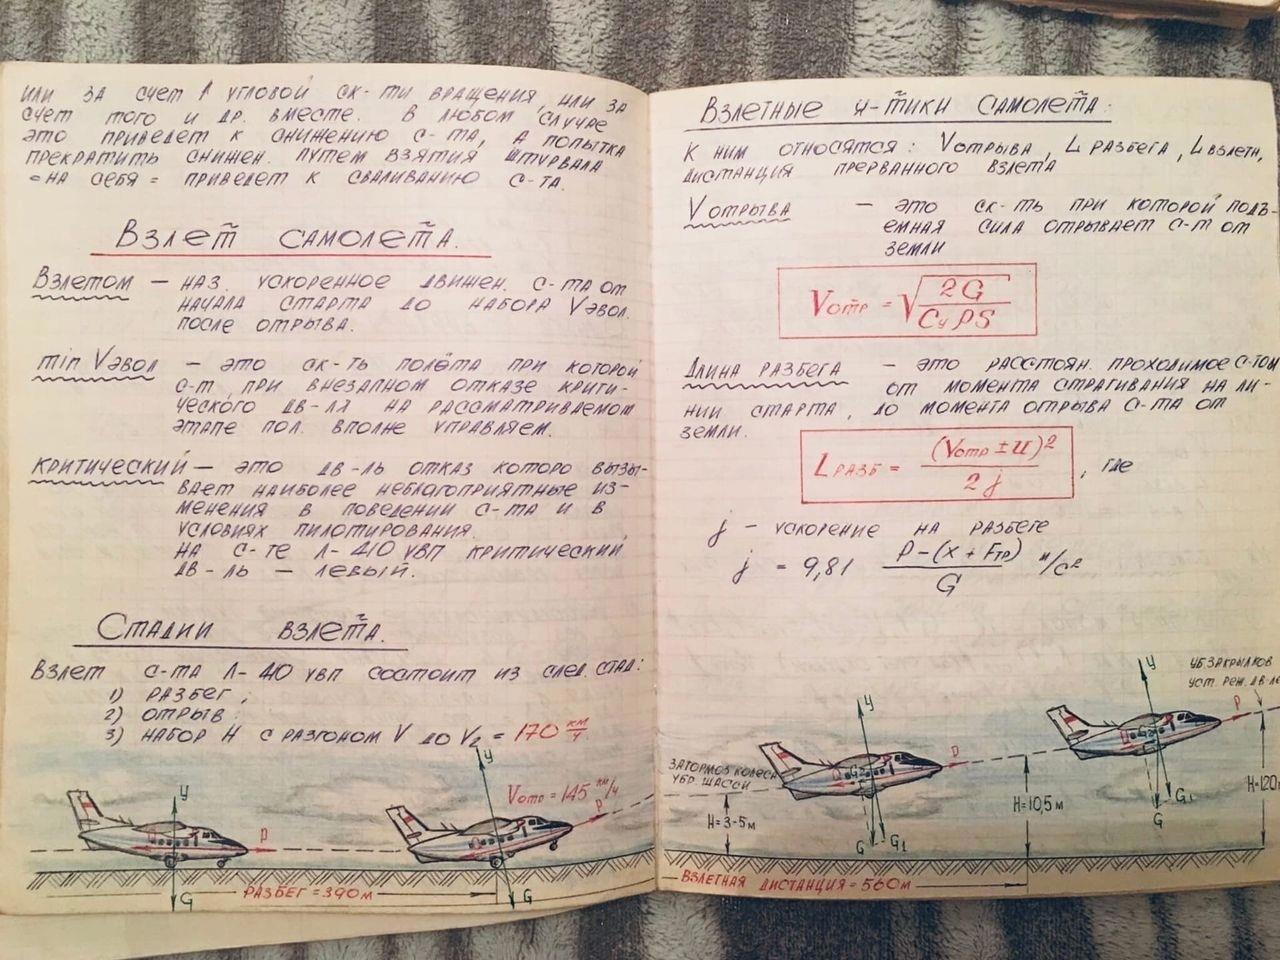 или за счет ↑ угловой ск-ти вращения, или за
счет того и др. вместе. В любом случае
это приведет к снижению с-та, а попытка
прекратить снижен. путем взятия штурвала
"на себя" приведет к сваливанию с-та.
Взлет самолета.
Взлетом — наз. ускоренное движен. с-та от
начала старта до набора Vэвол.
после отрыва.
min Vэвол — это ск-ть полёта при которой
с-т, при внезапном отказе крити-
ческого дв-ля на рассматриваемом
этапе пол. вполне управляем.
Критический — это дв-ль отказ которо вызы-
вает наиболее неблагоприятные из-
менения в поведении с-та и в
условиях пилотирования.
На с-те Л-410 увп критический
дв-ль — левый.
Стадии взлета.
Взлет с-та Л-410 увп состоит из след. стад:
1) разбег;
2) отрыв;
3) набор H с разгоном V до V₂ = 170 км/ч.
Vотр = 145 км/ч
У
Р
G
У
Р
G
Разбег = 390 м
Взлетные х-тики самолета.
К ним относятся: Vотрыва, L разбега, L взлетн,
дистанция прерванного взлета
V отрыва — это ск-ть при которой подъ-
емная сила отрывает с-т от
земли
Vотр = √(2G / CyρS)
Длина разбега — это расстоян. проходимое с-том
от момента страгивания на ли-
нии старта, до момента отрыва с-та от
земли.
Lразб = (Vотр ± U)² / 2j, где
j — ускорение на разбеге
j = 9,81 (P - (X + Fтр)) / G м/с²
Уб. закрылков
уст. реж. дв-ле
Затормоз колеса
убр. шасси
У
Р
G₂
G
G₁
У
Р
G₂
G
G₁
H=3-5м
H=10,5м
H=120
Взлетная дистанция = 560м